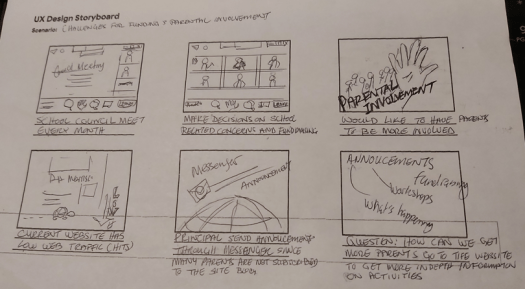 UX Design Storyboard
Scenario: CHALLENGES FOR FUNDING & PARENTAL INVOLVEMENT
Council Meeting
SCHOOL COUNCIL MEET
EVERY MONTH
MAKE DECISIONS ON SCHOOL
RELATED CONCERNS AND FUNDRAISING
PARENTAL
INVOLVEMENT
WOULD LIKE TO HAVE PARENTS
TO BE MORE INVOLVED
CURRENT WEBSITE HAS
LOW WEB TRAFFIC (HITS)
Messenger
ANNOUNCEMENT
PRINCIPAL SEND ANNOUNCEMENT
THROUGH MESSENGER SINCE
MANY PARENTS ARE NOT SUBSCRIBED
TO THE SITE
ANNOUCEMENTS
Fundraising
Workshops
What's happening
QUESTION: HOW CAN WE GET
MORE PARENTS GO TO THE WEBSITE
TO GET MORE INDEPTH INFORMATION
ON ACTIVITIES